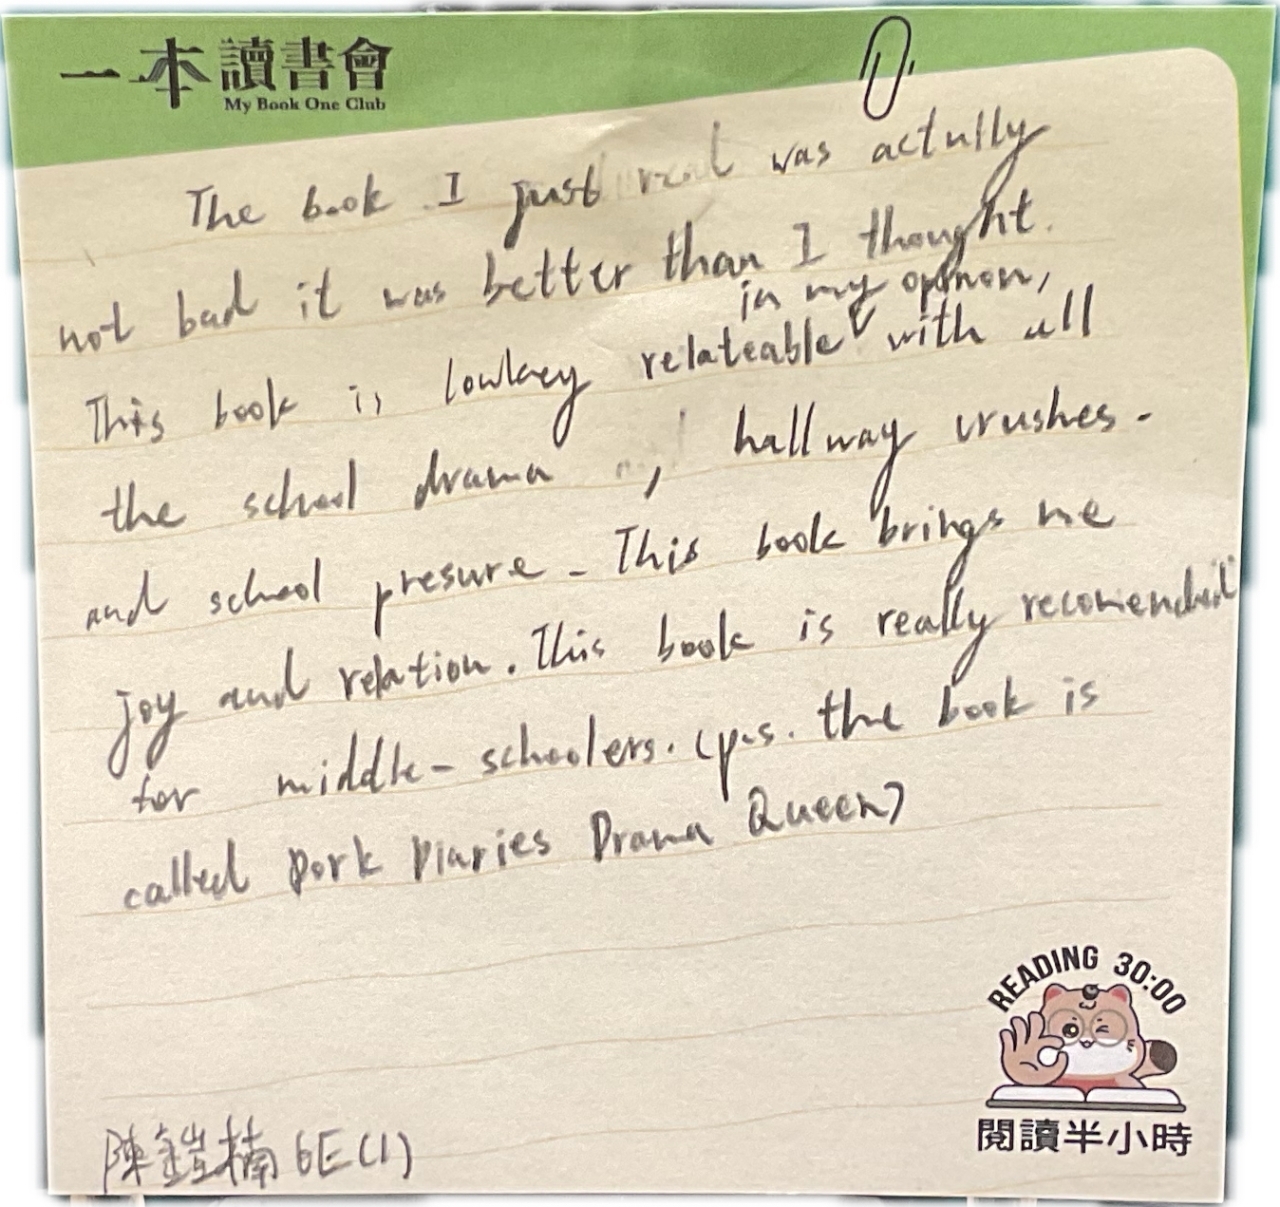 一本讀書會
My Book One Club
The book I just read was actully
not bad it was better than I thought.
in my opinion,
This book is lowkey relateable with all
the school drama , hallway crushes.
and school presure. This book brings me
joy and relation. This book is really recomended
for middle-schoolers. (p.s. the book is
called Dork Diaries Drama Queen)
READING 30:00
閱讀半小時
陳鎧楠 6E(1)